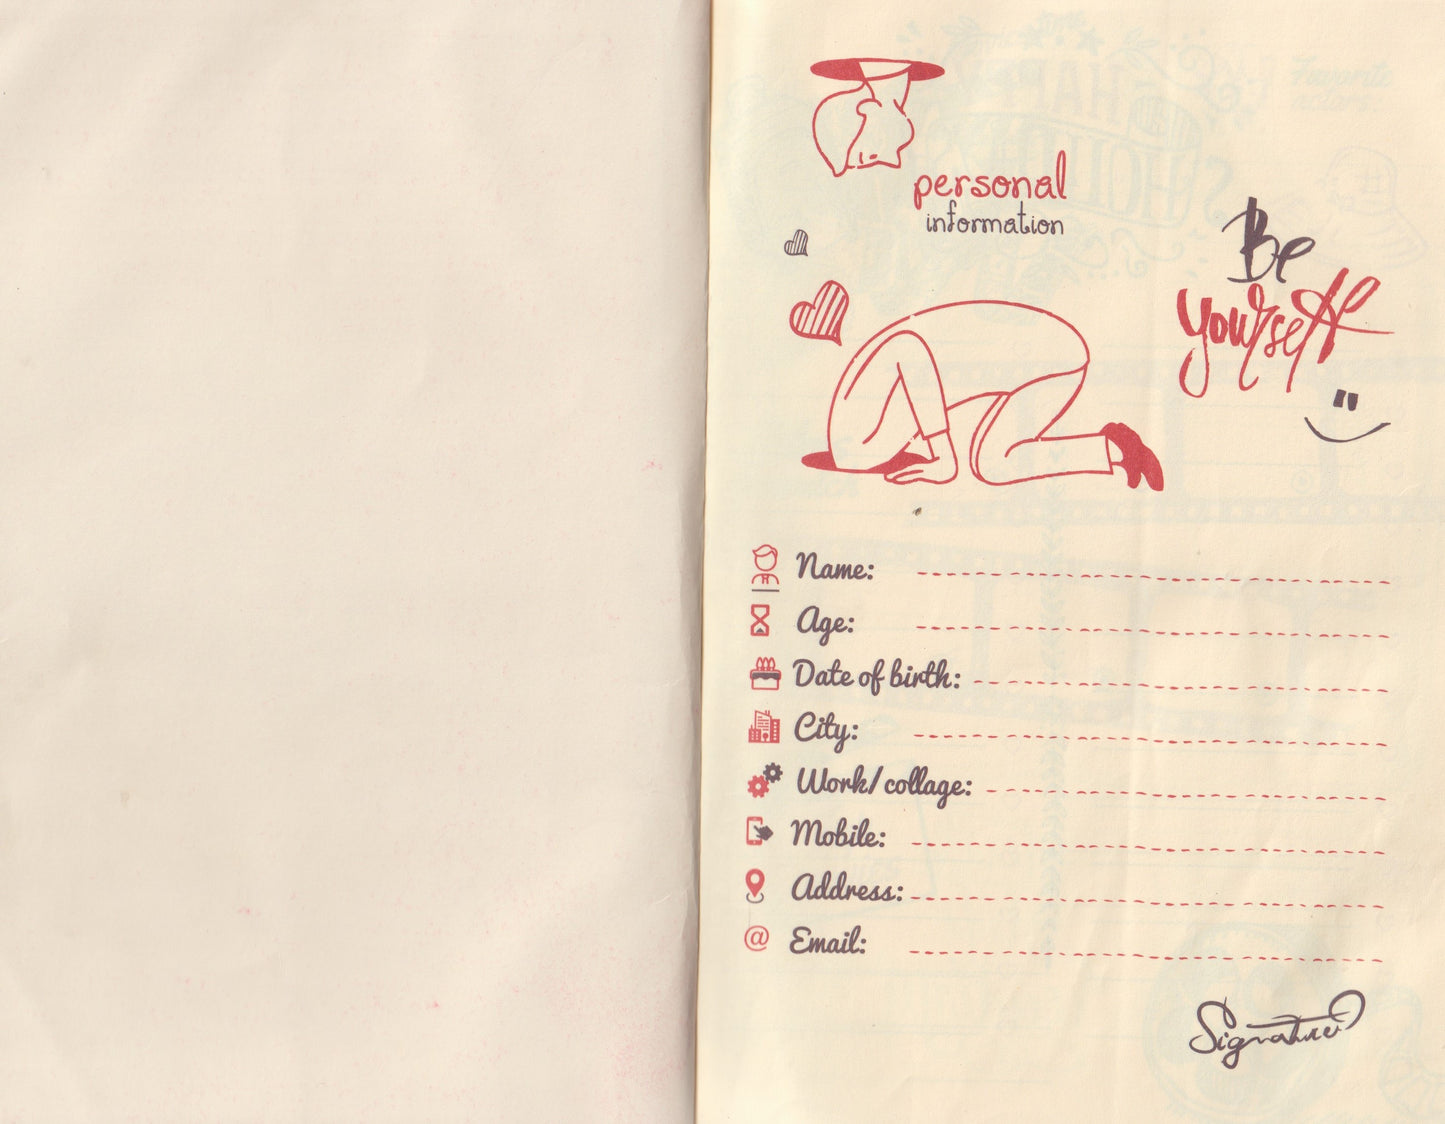 personal
information
Be
Yourself
Name:
Age:
Date of birth:
City:
Work/collage:
Mobile:
Address:
@ Email:
Signature
HAPPY
HOLIDAYS
Favorite